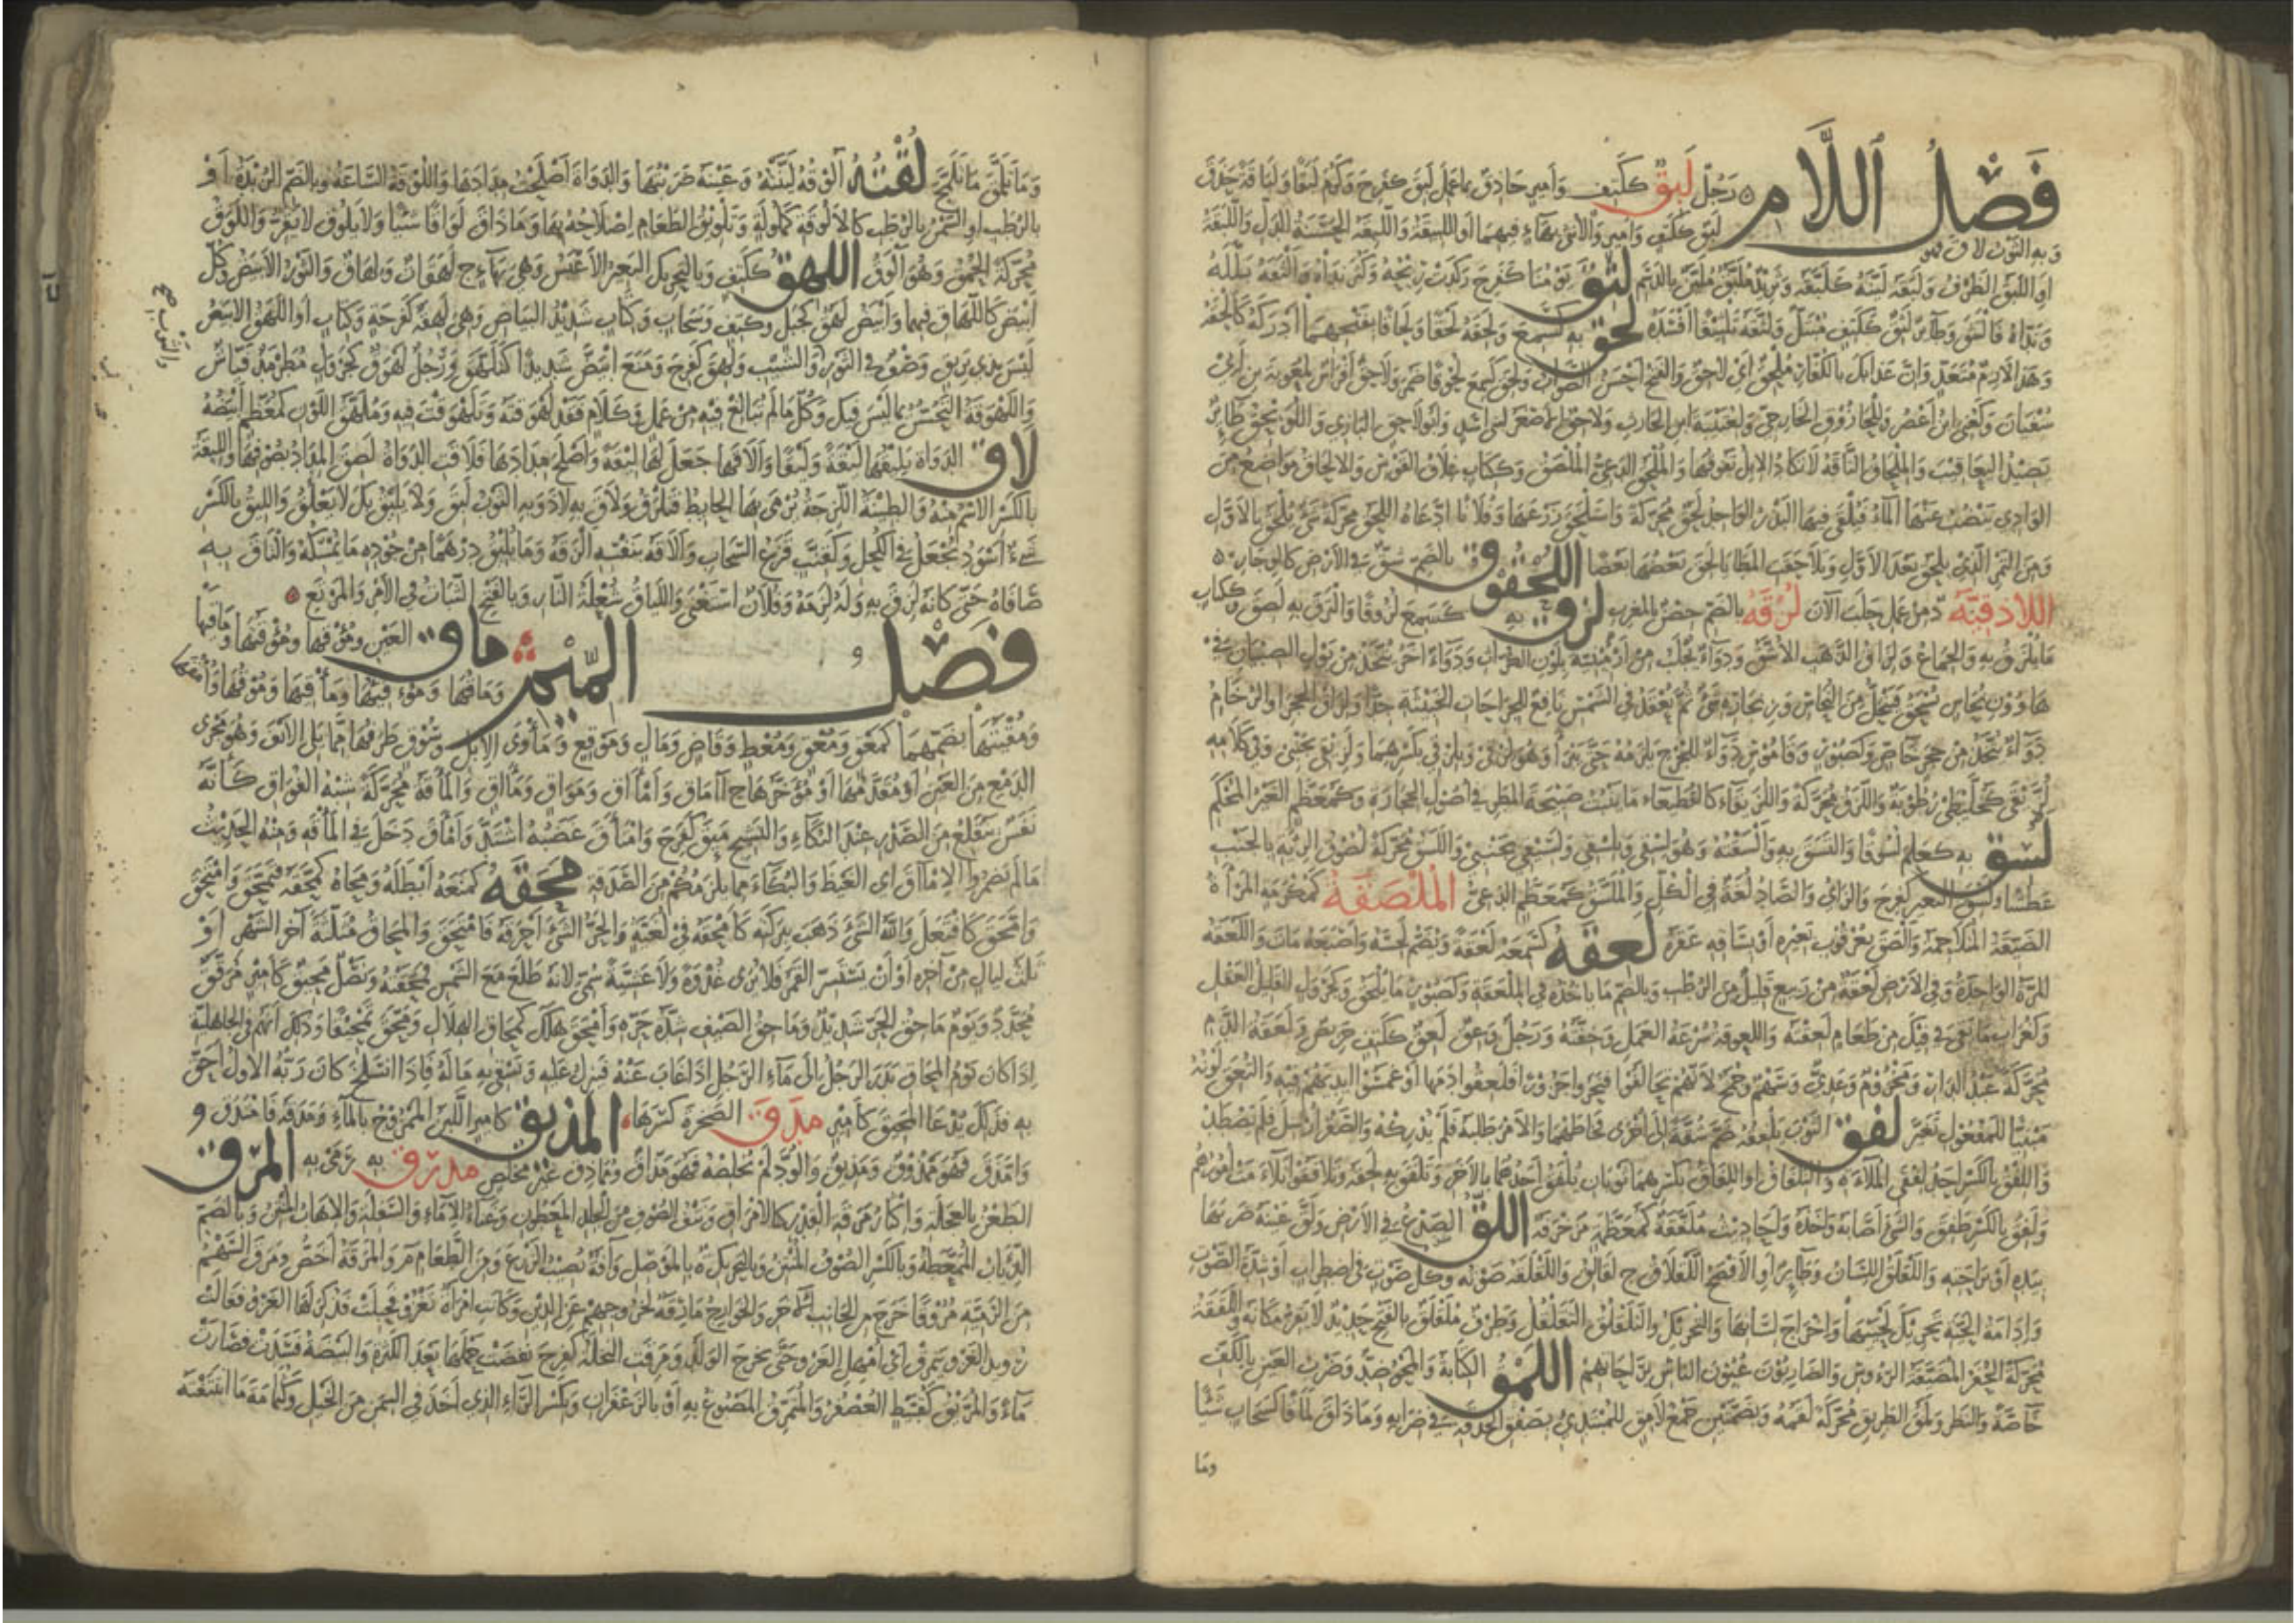 فَصْلُ اللَّام رَجُلٌ لَبِقٌ كَكَتِفٍ وأمير حاذق بما عمل لبق كفرح وكرم لبقا ولباقة حذق
وبه الثوب لاق فهو لبق ككتف وأمير والأنثى بهاء فيهما أو اللبيقة واللبقة الحسنة الدل واللبقة
أو اللبق الظرف ولبقه لينه كلبقه وثريد ملبق ملين بالدسم لثق يومنا كفرح ركدت ريحه وكثر نداه وألثقه بلله
ونداه فالتثق وطائر لثق ككتف مبتل ولثقه تلثيقا أفسده لحق به كسمع ولحقه لحقا ولحاقا بفتحهما أدركه كألحقه
وهذا لازم متعد وإن عذابك بالكفار ملحق أي لاحق والفتح أحسن أو الصواب ولحق كسمع لحوقا ضمر ولاحق أفراس لمعوية بن أبي
سفيان ولغني بن أعصر وللحازوق الخارجي ولعتيبة بن الحارث ولاحق الأصغر لبني أسد وأبو لاحق البازي واللويحق طائر
يصيد اليعاقيب والملحاق الناقة لا تكاد الإبل تفوقها والملحق الدعي الملصق وككتاب غلاف القوس والإلحاق مواضع من
الوادي ينضب عنها الماء فيلقى فيها البذر الواحد لحق محركة واستلحق زرعها وفلانا ادعاه اللحق محركة شيء يلحق بالأول
ومن الثمر الذي يلحق بعد الأول وتلاحقت المطايا لحق بعضها بعضا اللخقوق بالضم شق في الأرض كالوجار
اللاذقية د من عمل حلب الآن لزقة بالضم حصن بالمغرب لزق به كسمع لزوقا والتزق به لصق وككتاب
ما يلزق به والجماع ولزاق الذهب الأشق ودواء يجلب من أرمينية بلون الكراث ودواء آخر يتخذ من بول الصبيان في
هاوون نحاس يسحق فينحل من النحاس ومن بخاره شيء ثم يعقد في الشمس نافع للجراحات الخبيثة جدا ولزاق الحجر أو الرخام
دواء يتخذ من حجر خاص وكصبور وقاموس دواء للجرح يلزمه حتى يبرأ وهو لزقي وبلزقي بكسرهما ولزيقي بجنبي وفي كلامه
لزيقى كخليطى رطوبة واللزق محركة واللزيقاء كالقطيعاء ما ينبت صبيحة المطر في أصول الحجارة وكمعظم الغير المحكم
لسق به كعلم لسوقا والتسق به وألسقته وهو لسقي وبلسقي ولسيقي بجنبي واللسق محركة لصوق الرئة بالجنب
عطشا ولسق البعير كفرح والزاي والصاد لغة في الكل والملسق كمعظم الدعي الملصقة كمكرمة المرأة
الضيقة المتلاحمة وألصق بعرقوب بعيره أو بساقه عقره لعقه كسمعه لعقة ويضم لحسه وإصبعه مات واللعقة
المرة الواحدة وفي الأرض لعقة من ربيع قليل من الرطب وبالضم ما تأخذه في الملعقة وكصبور ما يلعق وكجرول القليل العقل
وكغراب ما بقي في فيك من طعام لعقته واللعوقة سرعة العمل وخفته ورجل وعق لعق ككتف حريص ولعقة الدم
محركة عبد الدار ومخزوم وعدي وسهم وجمح لأنهم تحالفوا فنحروا جزورا فلعقوا دمها أو غمسوا أيديهم فيه والتعق لونه
مبنيا للمفعول تغير لفق الثوب يلفقه ضم شقة إلى أخرى فخاطهما والأمر طلبه فلم يدركه والصقر أرسل فلم يصطد
واللفق بالكسر أحد لفقي الملاءة والتلفاق أو اللفاق بكسرهما ثوبان يلفق أحدهما بالآخر وتلفق به لحقه وتلافقوا تلاءمت أمورهم
ولفق بالكسر طفق والشيء أصابه وأخذه وأحاديث ملفقة كمعظمة مزخرفة اللق الصدع في الأرض ولق عينه ضربها
بيده أو براحته واللقلق اللسان وطائر أو الأفصح اللقلاق ج لقالق واللقلقة صوته وكل صوت في اضطراب أو شدة الصوت
وإدامة الحية تحريك لحييها وإخراج لسانها والتحريك والتلقلق التقلقل وطرف ملقلق بالفتح حديد لا يقر مكانه واللققة
محركة الحفر المضيقة الرؤس والضاربون عيون الناس براحاتهم اللمق الكتابة والمحو ضد وضرب العين بالكف
خاصة والنظر ولمق الطريق محركة لقمه وبضمتين جمع لامق للمبتدئ بصفق الحدقة في ضرابه وما ذاق لماقا كسحاب شيئا
وما
وما تلمق ما تلمج لقته ألوقه لينته وعينه ضربتها والدواة أصلحت مدادها واللوقة الساعة وبالضم الزبدة أو
بالرطب أو السمن بالرطب كالألوقة كملولة وتلويق الطعام إصلاحه بها وما ذاق لواقا شيئا ولا يلوق لا يقر واللوق
محركة الحمق وهو ألوق اللهق ككتف وبالتحريك البعير الأعيس وهي بهاء ج لهقات ولهاق والثور الأبيض وكل
أبيض كاللهاق فيهما وأبيض لهق كجبل وكتف وسحاب وكتاب شديد البياض وهي لهقة كفرحة وكتاب أو اللهق الأبيض
ليس بذي بريق وصف في الثور والثوب والشيب ولهق كفرح ومنع ابيض شديدا كتلهق ورجل لهوق كجرول مطرمذ فياش
واللهوقة التحسن بما ليس فيك وكل ما لم تبالغ فيه من عمل وكلام فقد لهوقته وتلهوقت فيه وملهق اللون كمعظم أبيضه
لاق الدواة يليقها ليقة وليقا وألاقها جعل لها ليقة وأصلح مدادها فلاقت الدواة لصق المداد بصوفها والليقة
بالكسر الاسم منه والطينة اللزجة يرمى بها الحائط فتلزق ولاق به لاذ وبه الثوب لبق ولا يليق بك لا يعلق والليق بالكسر
شيء أسود يجعل في الكحل وكعنب قزع السحاب وألاقه بنفسه ألزقه وما يليق درهما من جوده ما يمسكه والتاق به
صافاه حتى كأنه لزق به وله لزمه وفلان استغنى واللياق شعلة النار وبالفتح الثبات في الأمر والمرتع
فَصْل المِيْم ماق العين ومؤقها ومؤقيها وماقيها
وماقها وموقئها ومأقيها وموقها وأمقها
ومقيتها بضمهما كمعق ومعق ومعط وقاض ومال وموقع ومأوى الإبل وسوق طرفها مما يلي الأنف وهو مجرى
الدمع من العين أو مقدمها أو مؤخرها ج آماق وأمآق ومواق ومآق والمأقة محركة شبه الفواق كأنه
نفس يقلع من الصدر عند البكاء والنشيج مئق كفرح وامتأق غضبه اشتد وأمأق دخل في المأقة ومنه الحديث
ما لم تضمروا الإمآق أي الغيظ والبكاء مما يلزمكم من الصدقة محقه كمنعه أبطله ومحاه كمحقه فتمحق وامتحق
وامحق كافتعل والله الشيء ذهب ببركته كأمحقه في لغية والحر الشيء أحرقه فامتحق والمحاق مثلثة آخر الشهر أو
ثلث ليال من آخره أو أن يستسر القمر فلا يرى غدوة ولا عشية سمي لأنه طلع مع الشمس فمحقته ونصل محيق كأمير مرقق
محدد ويوم ماحق الحر شديد وماحق الصيف شدة حره وأمحق هلك كمحاق الهلال ومحق تمحيقا وذلك أنهم في الجاهلية
إذا كان يوم المحاق بدر الرجل إلى ماء الرجل إذا غاب عنه فينزل عليه ويسقي به ماله فإذا انسلخ كان ربه الأول أحق
به فذلك يدعا المحيق كأمير مدق الصخرة كسرها المذيق كأمير اللبن الممزوج بالماء ومذقه فامتذق و
وامذق فهو ممذوق ومذيق والود لم يخلصه فهو مذاق ومماذق غير مخلص مذرق به رمى به المرق
الطعن بالعجلة وإكثار مرقة القدر كالإمراق ونتف الصوف من الجلد المعطون وغناء الإماء والسفلة والإهاب المنتن وبالضم
الذئاب الممعطة وبالكسر الصوف المنتن وبالتحريك ة بالموصل وآفة تصيب الزرع ومن الطعام م والمرقة أخص ومرق السهم
من الرمية مروقا خرج من الجانب الآخر والخوارج مارقة لخروجهم عن الدين وكانت امرأة تغزو فحبلت فذكر لها الغزو فقالت
رويد الغزو يتمرق أي أمهل الغزو حتى يخرج الولد ومرقت النخلة كفرح نفضت حملها بعد الكثرة والبيضة فسدت فصارت
ماء والمريق كقبيط العصفر والمتمرق المصبوغ به أو بالزعفران وبكسر الراء الذي أخذ في السمن من الخيل وكثمامة ما انتتفته
والثوب صح